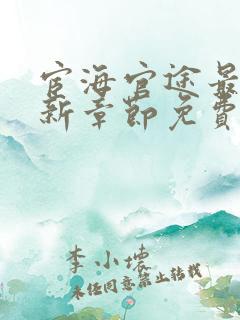 宦海官途最
新章節免費
李小壞
未经同意禁止转载